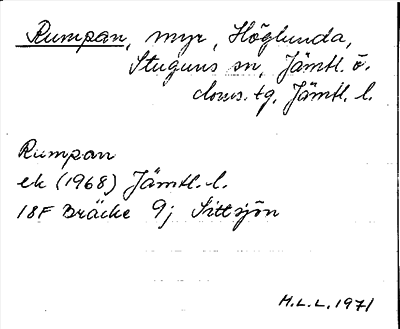 Rumpan, myr, Höglunda,
Stuguns sn, Jämtl. ö.
doms. tg, Jämtl. l.
Rumpan
ek (1968) Jämtl. l.
18F Bräcke 9j Sittsjön
H.L.L. 1971